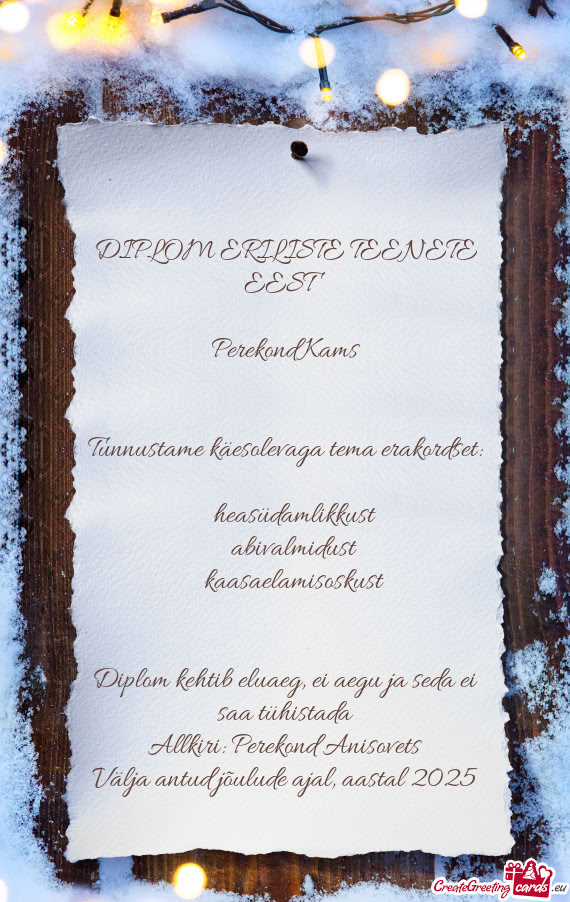 DIPLOM ERILISTE TEENETE
EEST
Perekond Kams
Tunnustame käesolevaga tema erakordset:
heasüdamlikkust
abivalmidust
kaasaelamisoskust
Diplom kehtib eluaeg, ei aegu ja seda ei
saa tühistada
Allkiri: Perekond Anisovets
Välja antud jõulude ajal, aastal 2025
CreateGreeting cards .eu